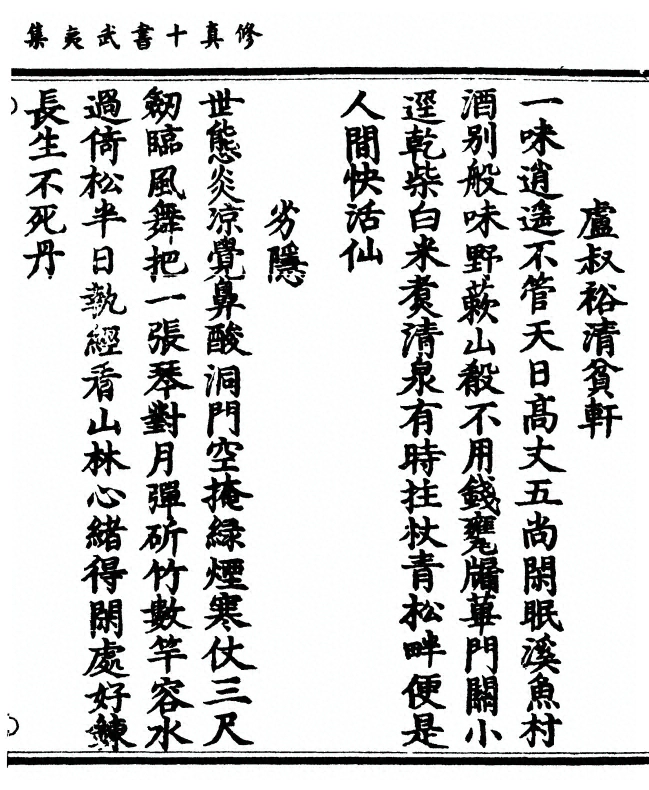 修真十書武夷集
盧叔裕清貧軒
一味逍遙不管天日高丈五尚閑眠溪魚村
酒别般味野蔌山殽不用錢甕牖蓽門關小
逕乾柴白米煑清泉有時拄杖青松畔便是
人間快活仙
劣隱
世態炎凉覺鼻酸洞門空掩綠煙寒仗三尺
劒臨風舞把一張琴對月彈斫竹數竿容水
過倚松半日執經看山林心緒得閑處好鍊
長生不死丹